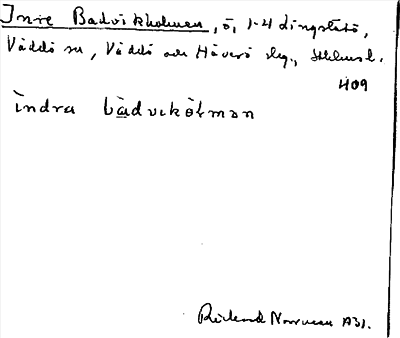 Inre Badviksholmen, ö, 1-4 Lingslätö,
Väddö sn, Väddö och Häverö skg., Sthlms l.
409
ìndra bàdvikòlman
Rickard Norrman 1931.